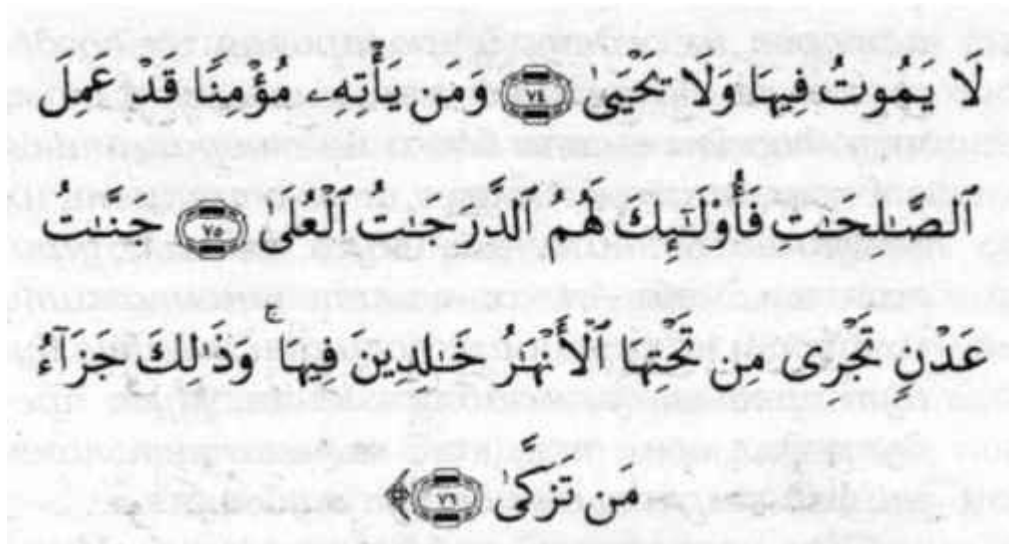 لَا يَمُوتُ فِيهَا وَلَا يَحْيَىٰ ﴿٧٤﴾ وَمَن يَأْتِهِۦ مُؤْمِنًا قَدْ عَمِلَ
ٱلصَّٰلِحَٰتِ فَأُو۟لَٰٓئِكَ لَهُمُ ٱلدَّرَجَٰتُ ٱلْعُلَىٰ ﴿٧٥﴾ جَنَّٰتُ
عَدْنٍ تَجْرِى مِن تَحْتِهَا ٱلْأَنْهَٰرُ خَٰلِدِينَ فِيهَا ۚ وَذَٰلِكَ جَزَآءُ
مَن تَزَكَّىٰ ﴿٧٦﴾